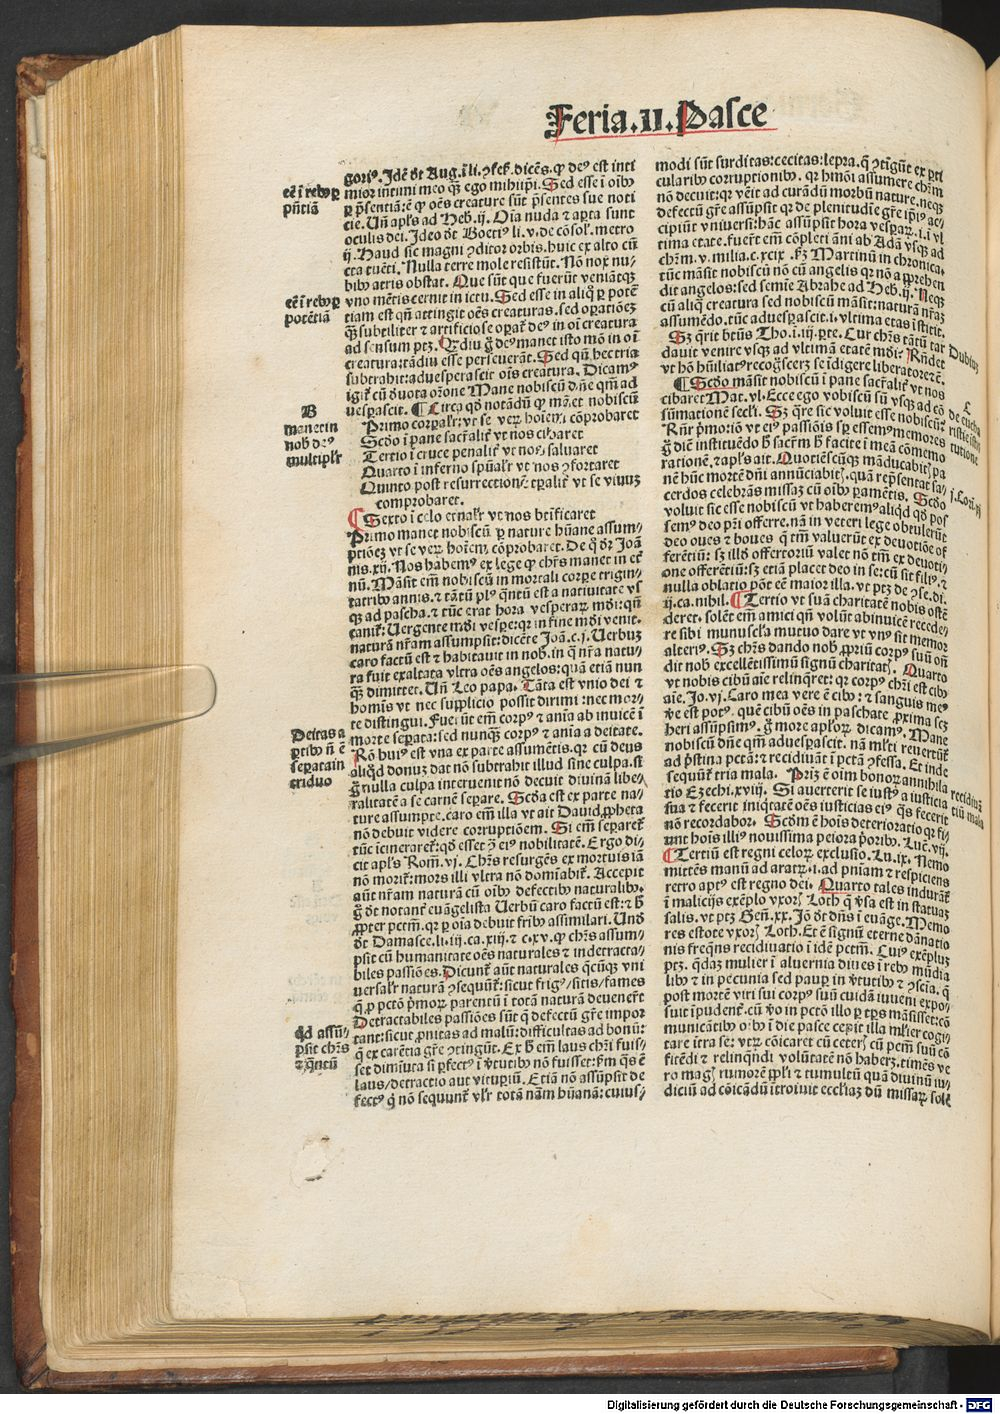 Feria.II.Pasce
goriꝰ. Idē dt Aug. ī li. ꝯfeſ. dicēs. ꝙ deꝰ est inti
mior intimi meo qȝ ego mihiip̄i. Sed esse ī oībꝰ
ꝑ pn̄sentiā: ē ꝙ oēs creature sūt pn̄sentes sue noti
cie. Un̄ apl's ad Heb. ij. Oīa nuda ⁊ aperta sunt
oculis dei. Ideo dt Boetiꝰ li. v. de cōsol'. metro
ij. Haud sic magni ꝯditor orbis. huic ex alto cū
cta tuēti. Nulla terre mole resistūt. Nō nox nu⸗
bibꝰ atris obstat. Que sūt que fuerūt veniātqȝ
vno mētis cernit in ictu. Sed esse in aliqͦ ꝑ potē
tiam est qn̄ attingit oēs creaturas. sed oꝑatiōeȝ
qȝ subtiliter ⁊ artificiose oꝑat' deꝰ in oī creatura
ad sensum ptȝ. Qȝdiu g̊ deꝰ manet isto mō in oī
creatura: tādiu esse perseuerāt. Sed qn̄ hec tria
subtrahit: aduesperascit oīs creatura. Dicamꝰ
igit' cū deuota orōne Mane nobiscū dn̄e qm̄ ad
uesꝑascit. ¶ Circa qd̄ notādū ꝙ manet nobiscū
Primo corꝑal'r: vt se verū hoīem cōprobaret
Scdo ī pane sacral'it' vt nos cibaret
Tertio ī cruce penalit' vt nos saluaret
Quarto ī inferno spūal'r vt nos ꝯfortaret
Quinto post resurrectionē tꝑalit' vt se viuuȝ
comprobaret.
¶ Sexto ī celo etnal'r vt nos btīficaret
Primo manet nobiscū ꝑ nature hūane assum⸗
ptiōeȝ vt se verū hoīem cōprobaret. De qͦ dr Joā
nis. xij. Nos habemꝰ ex lege ꝙ chr̄s manet in et'
nū. Māsit em̄ nobiscū in mortali corꝑe trigin⸗
tatribꝰ annis. ⁊ tātū plꝰ qn̄tū est a natiuitate vs
qȝ ad pascha. ⁊ tūc erat hora vesperaꝝ mōi: qn̄
canit': Vergente mōi vespe: qꝛ in fine mōi venit.
naturā nr̄am assumpsit: dicēte Joā. c. j. Verbuȝ
caro factū est ⁊ habitauit in nob. in qͦ nr̄a natu⸗
ra fuit exaltata vltra oēs angelos: quā etiā nun
qȝ dimittet. Un̄ Leo papa. Tāta est vnio dei ⁊
homīs vt nec supplicio possit dirimi: nec mor⸗
te distingui. Fuerūt em̄ corpꝰ ⁊ aīa ab inuicē ī
morte seꝑata: sed nunqȝ corpꝰ ⁊ aīa a deitate.
Rō huiꝰ est vna ex parte assumētis. qꝛ cū deus
aliqd donuȝ dat nō subtrahit illud sine culpa. sȝ
g̊ nulla culpa interuenit nō decuit diuinā libe⸗
ralitatē a se carnē seꝑare. Scda est ex parte na⸗
ture assumpte. caro em̄ illa vt ait Dauid ꝓpheta
nō debuit videre corruptiōem. Si em̄ seꝑaret'
tūc icineraret': qd̄ esset ꝯ eiꝰ nobilitatē. Ergo di⸗
cit apl's Rom̄. vj. Chr̄s resurgēs ex mortuis iā
nō morit': mors illi vltra nō domīabit'. Accepit
aūt nr̄am naturā cū oībꝰ defectibꝰ naturalibꝰ.
g̊ dt notant' euāgelista Verbū caro factū est: ⁊ h̄
ꝓpter pctm̄. qꝛ ꝑ oīa debuit fribꝰ assimilari. Unde
dt Damasce. li. iij. ca. xiij. ⁊ c. xv. ꝙ chr̄s assum⸗
psit cū humanitate oēs naturales ⁊ indetracta⸗
biles passiōes. Dicunt' aūt naturales qͨūqȝ vni
versalr' naturā ꝯsequūt': sicut frigꝰ/sitis/fames
q̄ ꝑ pctō p̄moꝝ parentū ī totā naturā deuenert'
Detractabiles passiōes sūt q̄ defectū gr̄e impor
tant: sicut ꝓnitas ad malū: difficultas ad bonū:
q̄ ex carētia gr̄e ꝯtingūt. Ex h̄ em̄ laus chr̄i fuis⸗
set dimīuta si ꝑfectꝰ ī v̄tutibꝰ nō fuisset: fm̄ qs̄ ē
laus/detractio aut vituꝑiū. Etiā nō assūpsit de
fectꝰ q̄ nō sequunt' vl'r totā nām hūanā: cuius⸗
modi sūt surditas: cecitas: lepra. q̄ ꝯtigūt ex ꝑti
cularibꝰ corruptionibꝰ. qꝛ hmōi assumere chr̄m
nō decuit: qꝛ vēit ad curādū morbū nature. neqȝ
defectū gr̄e assūpsit qꝛ de plenitudīe gr̄e ip̄iꝰ ac⸗
cipiūt vniuersi: hāc assūpsit hora vesꝑaꝝ. i. ī vl
tima etate. fuert' em̄ cōpleti āni ab Adā vsqȝ ad
chr̄m. v. milia. c. xcix. fȝ Martinū in chronica.
tūc māsit nobiscū nō cū angelis qꝛ nō apprehen
dit angelos: sed semīe Abrahe ad Heb. ij. Neqȝ
cū aliq̄ creatura sed nobiscū māsit: naturā nr̄aȝ
assumēdo. tūc aduesꝑascit. i. vltima etas īstitit.
Sȝ qrit btūs Tho. ī. iij. ꝑte. Cur chr̄s tātū tar
dauit venire vsqȝ ad vltimā etatē mōi: Rn̄det
vt hō hūiliatꝰ recogsceret se īdigere liberatore ⁊c.
¶ Scdo māsit nobiscū ī pane sacral'it' vt nos
cibaret Mat. vl. Ecce ego vobiscū sū vsqȝ ad cō
sūmationē secl'i. Sȝ qre sic voluit esse nobiscū:
Rn̄r pmoriō vt eiꝰ passiōis sꝑ essemꝰ memores
g̊ diē instituēdo h̄ sacrm̄ h̄ facite ī meā cōmemo
rationē. ⁊ apl's ait. Quotiēscūqȝ māducabitꝭ pa
nē hūc mortē dn̄i annūciabitꝭ. quā rep̄sentat sa⸗
cerdos celebrās missaȝ cū oībꝰ ꝑamētis. Scdo
voluit sic esse nobiscū vt haberemꝰ aliqd qd̄ pos
semꝰ deo pr̄i offerre. nā in veteri lege obtulerūt
deo oues ⁊ boues q̄ tm̄ valuerūt ex deuotiōe of
ferētiū: sȝ illd offertoriū valet nō tm̄ ex deuoti⸗
one offerētiū: sȝ etiā placet deo in se: cū sit filiꝰ. ⁊
nulla oblatio pōt eē maior illa. vt ptȝ de ꝯse. di.
ij. ca. nihil. ¶ Tertio vt suā charitatē nobis ostē
deret. solēt em̄ amici qn̄ volūt abinuicē recede⸗
re sibi munuscl'a mutuo dare vt vnꝰ sit memor
alteriꝰ. Sȝ chr̄s dando nob ꝓpriū corpꝰ suū on̄
dit nob excellētissimū signū charitatꝭ. Quarto
vt nobis cibū aīe relinqret: qꝛ corpꝰ chr̄i est cibꝰ
aīe. Jo. vj. Caro mea vere ē cibꝰ: ⁊ sanguis meꝰ
v̄e est potꝰ. quē cibū oēs in paschate ꝓxima seȝ
heri assūpsimꝰ. g̊ more apl'oꝝ dicamꝰ. Mane
nobiscū dn̄e qm̄ aduesꝑascit. nā ml'ti reuertūt'
ad p̄stina pctā: ⁊ recidiuāt ī pctā ꝯfessa. Et inde
sequūt' tria mala. Prīȝ ē oīm bonoꝝ annihila
tio Ezechi. xviij. Si auerterit se iustꝰ a iusticia
sua ⁊ fecerit iniqtatē oēs iusticias eiꝰ qs̄ fecerit
nō recordabor. Scdm̄ ē hoīs deterioratio qꝛ fi⸗
unt hoīs illiꝰ nouissīma peiora p̄oribꝰ. Luc̄. vij.
¶ Tertiū est regni celoꝝ exclusio. Lu. ix. Nemo
mittēs manū ad aratꝝ. i. ad pn̄iam ⁊ respiciens
retro aptꝰ est regno dei. Quarto tales indurāt'
ī malicijs exēplo vxorꝭ Loth q̄ v̄sa est in statuaȝ
salis. vt ptȝ Gen̄. xx. Iō dt dn̄s ī euāge. Memo
res estote vxorꝭ Loth. Et ē signū eterne dānatio
nis freqn̄s recidiuatio ī idē pctm̄. Cuiꝰ exēpluȝ
ptȝ. qdaȝ mulier ī aluernia diues ī rebꝰ mūdia
libꝰ ⁊ in pecunia sed pauꝑ in v̄tutibꝰ ⁊ ꝯscīa. q̄
post mortē viri sui corpꝰ suū cuidā iuueni expo⸗
suit īpudent'. cū v̄o in pctō illo ꝑ tꝑs māsisset: cō
municātibꝰ oībꝰ ī die pasce cepit illa ml'ier cogi⸗
tare itra se: vtꝝ cōicaret cū ceterꝭ cū pctm̄ suū cō
fitēdi ⁊ relinqndi volūtatē nō haberȝ. timēs ve
ro magꝭ rumorē ppl'i ⁊ tumultū quā diuinū iu⸗
diciū ad cōicādū ītroiuit eccl'iaȝ dū missaꝝ sole
eē ī rebꝰ ꝑ
pn̄tiā
eē ī rebꝰ ꝑ
potētiā
B
manet in
nob deꝰ
multipl'r
Deitas a
ꝑtibꝰ n̄ ē
seꝑata in
triduo
Qd̄ assū⸗
psit chr̄s
⁊ qn̄tū
Dubiuȝ
C
De eucha
ristie īsti
tutione
j. Cor. xj
recidiuꝰ
tiū mala
Digitalisierung gefördert durch die Deutsche Forschungsgemeinschaft - DFG